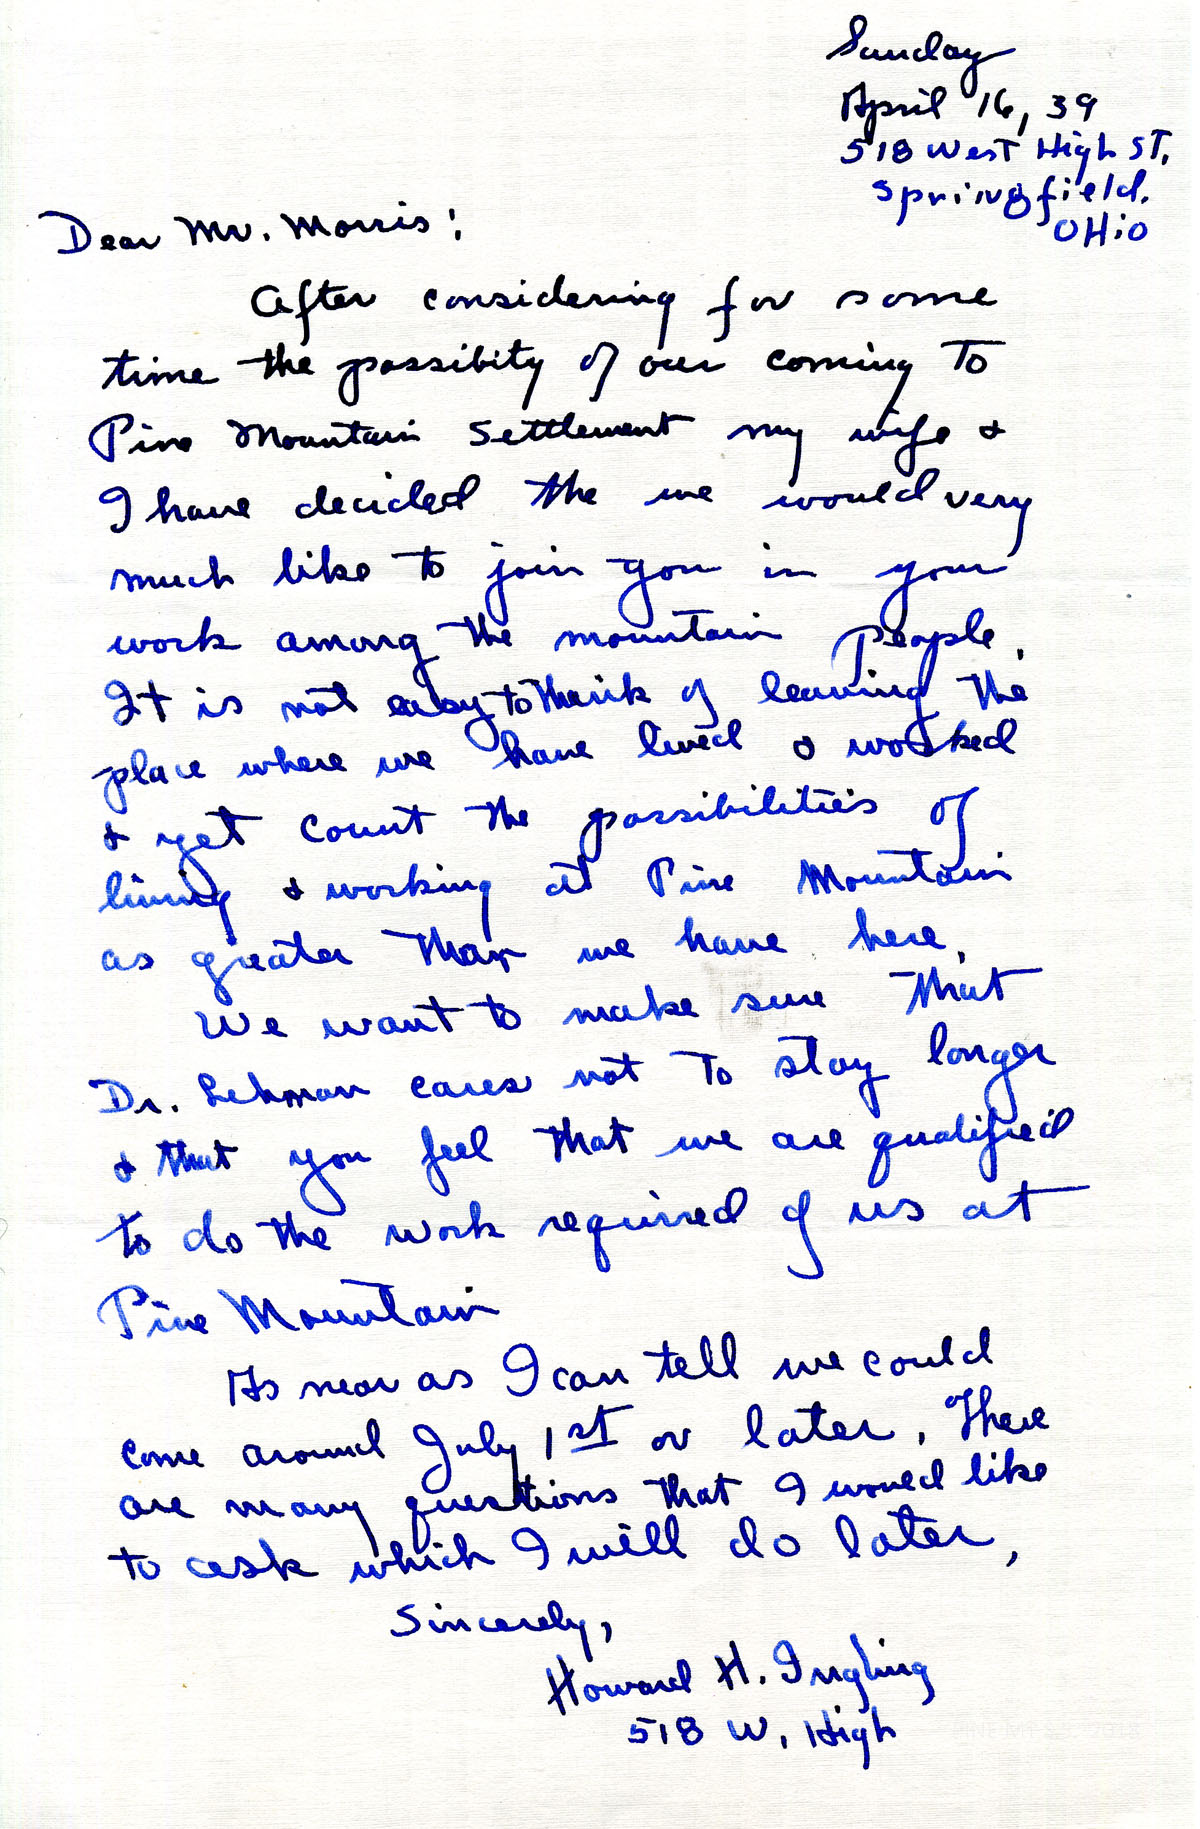 Sunday
April 16, 39
518 West High ST.
Springfield.
OHio
Dear Mr. Morris:
After considering for some
time the possibity of our coming To
Pine Mountain Settlement my wife &
I have decided the we would very
much like to join you in your
work among the mountain people.
It is not easy to think of leaving the
place where we have lived & worked
& yet count the possibilities of
living & working at Pine Mountain
as greater than we have here.
We want to make sure that
Dr. Lehman cares not To stay longer
& that you feel that we are qualified
to do the work required of us at
Pine Mountain
As near as I can tell we could
come around July 1st or later. There
are many questions that I would like
to ask which I will do later,
Sincerely,
Howard H. Ingling
518 W. High